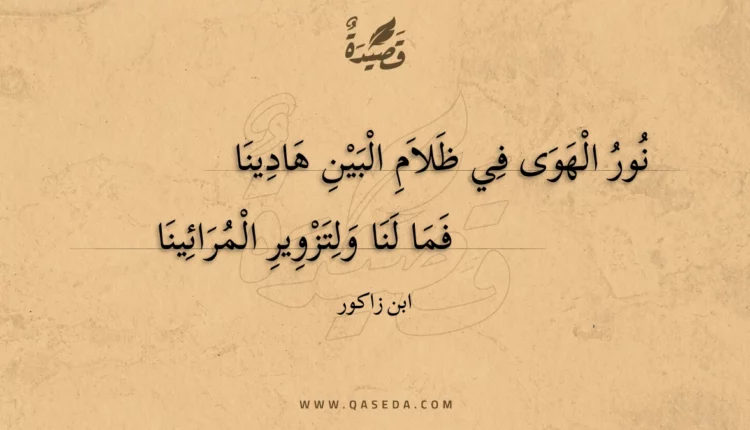 قَصِيدَةٌ
نُورُ الْهَوَى فِي ظَلاَمِ الْبَيْنِ هَادِينَا
فَمَا لَنَا وَلِتَزْوِيرِ الْمُرَائِينَا
ابن زاكور
WWW.QASEDA.COM